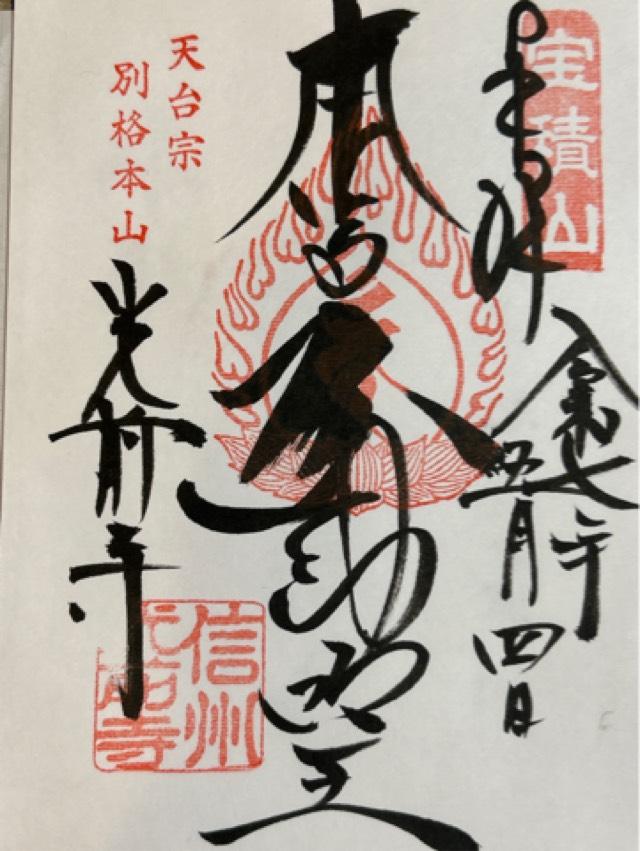 宝積山
奉拝
令和七年
五月四日
本尊
不動明王
天台宗
別格本山
光前寺
信州
光前寺